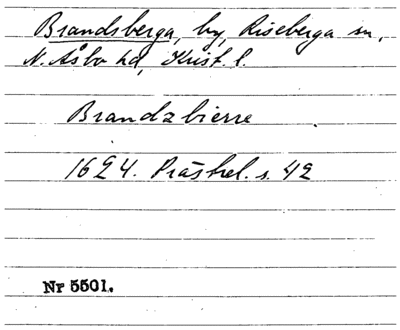 Brandsberga, by, Riseberga sn,
N. Åsbo hd, Krist. l.
Brandzbierre
1624. Prästrel. s. 42
Nr 5501.